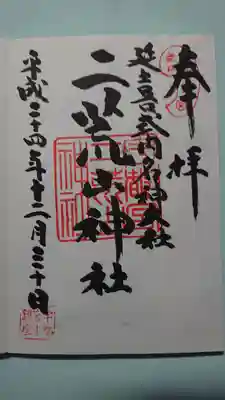 奉拝
延喜式内名神大社
二荒山神社
平成二十四年十二月三十日